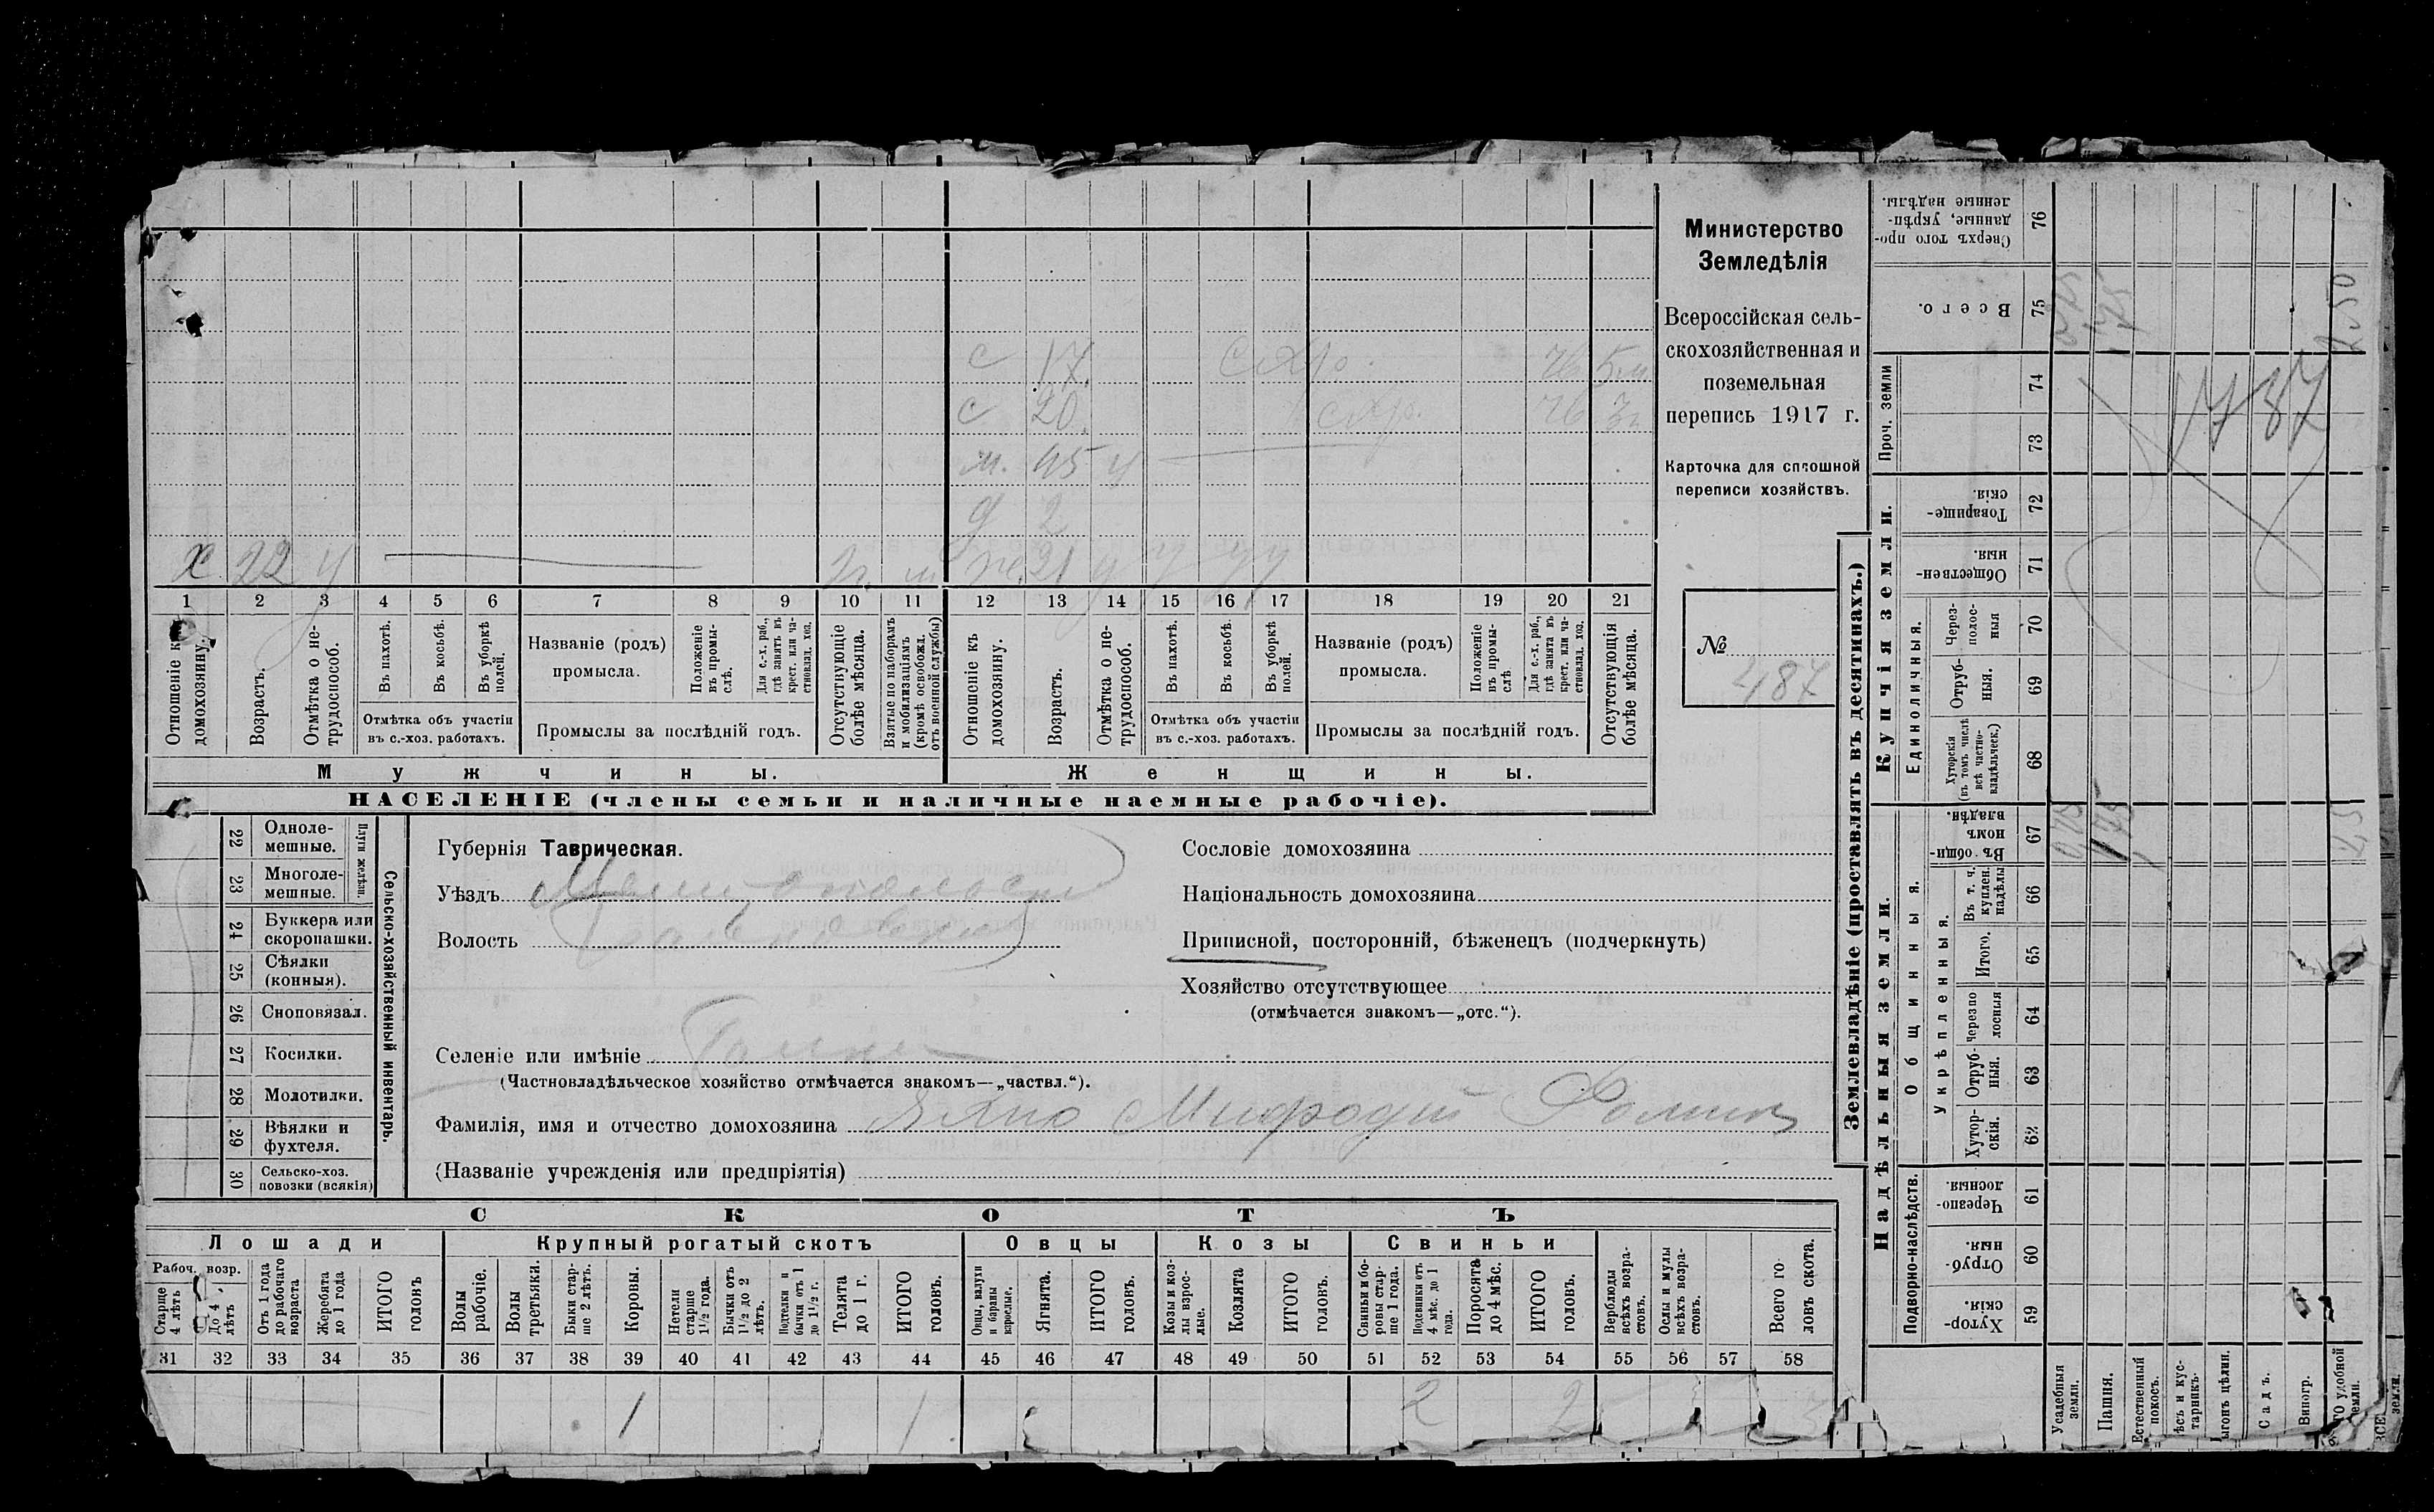 Министерство
Земледѣлія
Всероссійская сель-
скохозяйственная и
поземельная
перепись 1917 г.
Карточка для сплошной
переписи хозяйствъ.
№
487
с 17
с 20
м. 45 у
д 2
х 22 у
ж. 21 у у у у
1 2 3 4 5 6 7 8 9 10 11 12 13 14 15 16 17 18 19 20 21
Отношеніе къ домохозяину.
Возрастъ.
Отмѣтка о не-трудоспособ.
Въ пахотѣ.
Въ косьбѣ.
Въ уборкѣ полей.
Отмѣтка объ участіи
въ с.-хоз. работахъ.
Названіе (родъ)
промысла.
Положеніе въ промы-слѣ.
Для с.-х. раб., гдѣ занятъ въ крест. или ча-стновлад. хоз.
Промыслы за послѣдній годъ.
Отсутствующіе болѣе мѣсяца.
Взятые по наборамъ и мобилизаціямъ (кромѣ освобожд. отъ военной службы)
Отношеніе къ домохозяину.
Возрастъ.
Отмѣтка о не-трудоспособ.
Въ пахотѣ.
Въ косьбѣ.
Въ уборкѣ полей.
Отмѣтка объ участіи
въ с.-хоз. работахъ.
Названіе (родъ)
промысла.
Положеніе въ промы-слѣ
Для с.-х. раб., гдѣ занята въ крест. или ча-стновлад. хоз.
Промыслы за послѣдній годъ.
Отсутствующія болѣе мѣсяца.
Мужчины.
Женщины.
НАСЕЛЕНІЕ (члены семьи и наличные наемные рабочіе).
22 Одноле-мешные.
23 Многоле-мешные.
Плуги желѣзн.
24 Буккера или скоропашки.
25 Сѣялки (конныя).
26 Сноповязал.
27 Косилки.
28 Молотилки.
29 Вѣялки и фухтеля.
30 Сельско-хоз. повозки (всякія)
Сельско-хозяйственный инвентарь.
Губернія Таврическая.
Уѣздъ
Волость
Селеніе или имѣніе
(Частновладѣльческое хозяйство отмѣчается знакомъ—„частвл.“).
Фамилія, имя и отчество домохозяина
(Названіе учрежденія или предпріятія)
Сословіе домохозяина
Національность домохозяина
Приписной, посторонній, бѣженецъ (подчеркнуть)
Хозяйство отсутствующее
(отмѣчается знакомъ—„отс.“).
СКОТЪ
Лошади
Крупный рогатый скотъ
Овцы
Козы
Свиньи
Рабоч. возр.
Старше 4 лѣтъ
До 4 лѣтъ
Отъ 1 года до рабочаго возраста
Жеребята до 1 года
ИТОГО головъ
Волы рабочіе.
Волы третьяки.
Быки стар-ше 2 лѣтъ.
Коровы.
Нетели старше 1½ года.
Бычки отъ 1½ до 2 лѣтъ.
Подтелки и бычки отъ 1 до 1½ г.
Телята до 1 г.
ИТОГО головъ.
Овцы, валухи и бараны взрослые.
Ягнята.
ИТОГО головъ.
Козы и коз-лы взрос-лые.
Козлята
ИТОГО головъ.
Свиньи и бо-ровы стар-ше 1 года.
Подсвинки отъ 4 мѣс. до 1 года.
Поросята до 4 мѣс.
ИТОГО головъ.
Верблюды всѣхъ возра-стовъ.
Ослы и мулы всѣхъ возра-стовъ.
Всего го-ловъ скота.
31 32 33 34 35 36 37 38 39 40 41 42 43 44 45 46 47 48 49 50 51 52 53 54 55 56 57 58
1 1 2 2 3
Землевладѣніе (проставлять въ десятинахъ.)
Купчія земли.
Надѣльныя земли.
Сверхъ того про-данные, укрѣп-ленные надѣлы. 76
Всего. 75
Проч. земли 74 73
Товарище-скія. 72
Обществен-ныя. 71
Единоличныя.
Через-полос-ныя 70
Отруб-ныя. 69
Хуторскія (въ томъ числѣ всѣ частно-владѣльческ.) 68
Общинныя.
Въ общин-номъ владѣн. 67
Укрѣпленныя.
Въ т. ч. куплен. надѣлы 66
Итого. 65
Черезпо лосныя 64
Отруб-ныя. 63
Хутор-скія. 62
Подворно-наслѣдств.
Черезпо-лосныя. 61
Отруб-ныя. 60
Хутор-скія. 59
Усадебныя земли.
Пашня.
Естественный покосъ.
Садъ.
Виногр.